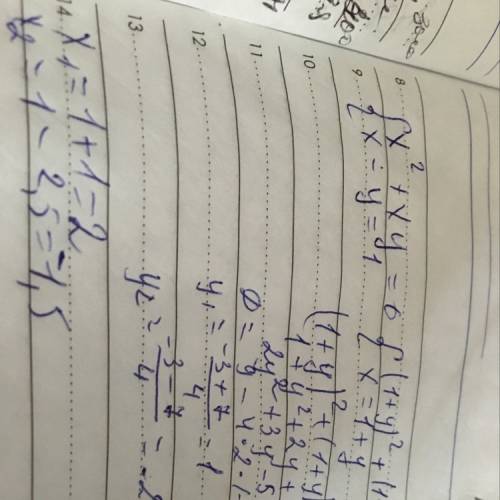 8 { x² + xy = 6 { (1+y)² + (1
9 { x - y = 1 { x = 1+y
10 (1+y)² + (1+y)
1 + y² + 2y +
11 2y² + 3y - 5
D = 9 - 4·2·(-
12 y₁ = -3+7/4 = 1
13 y₂ = -3-7/4 = -2
14 x₁ = 1+1 = 2
x₂ = 1 - 2,5 = -1,5